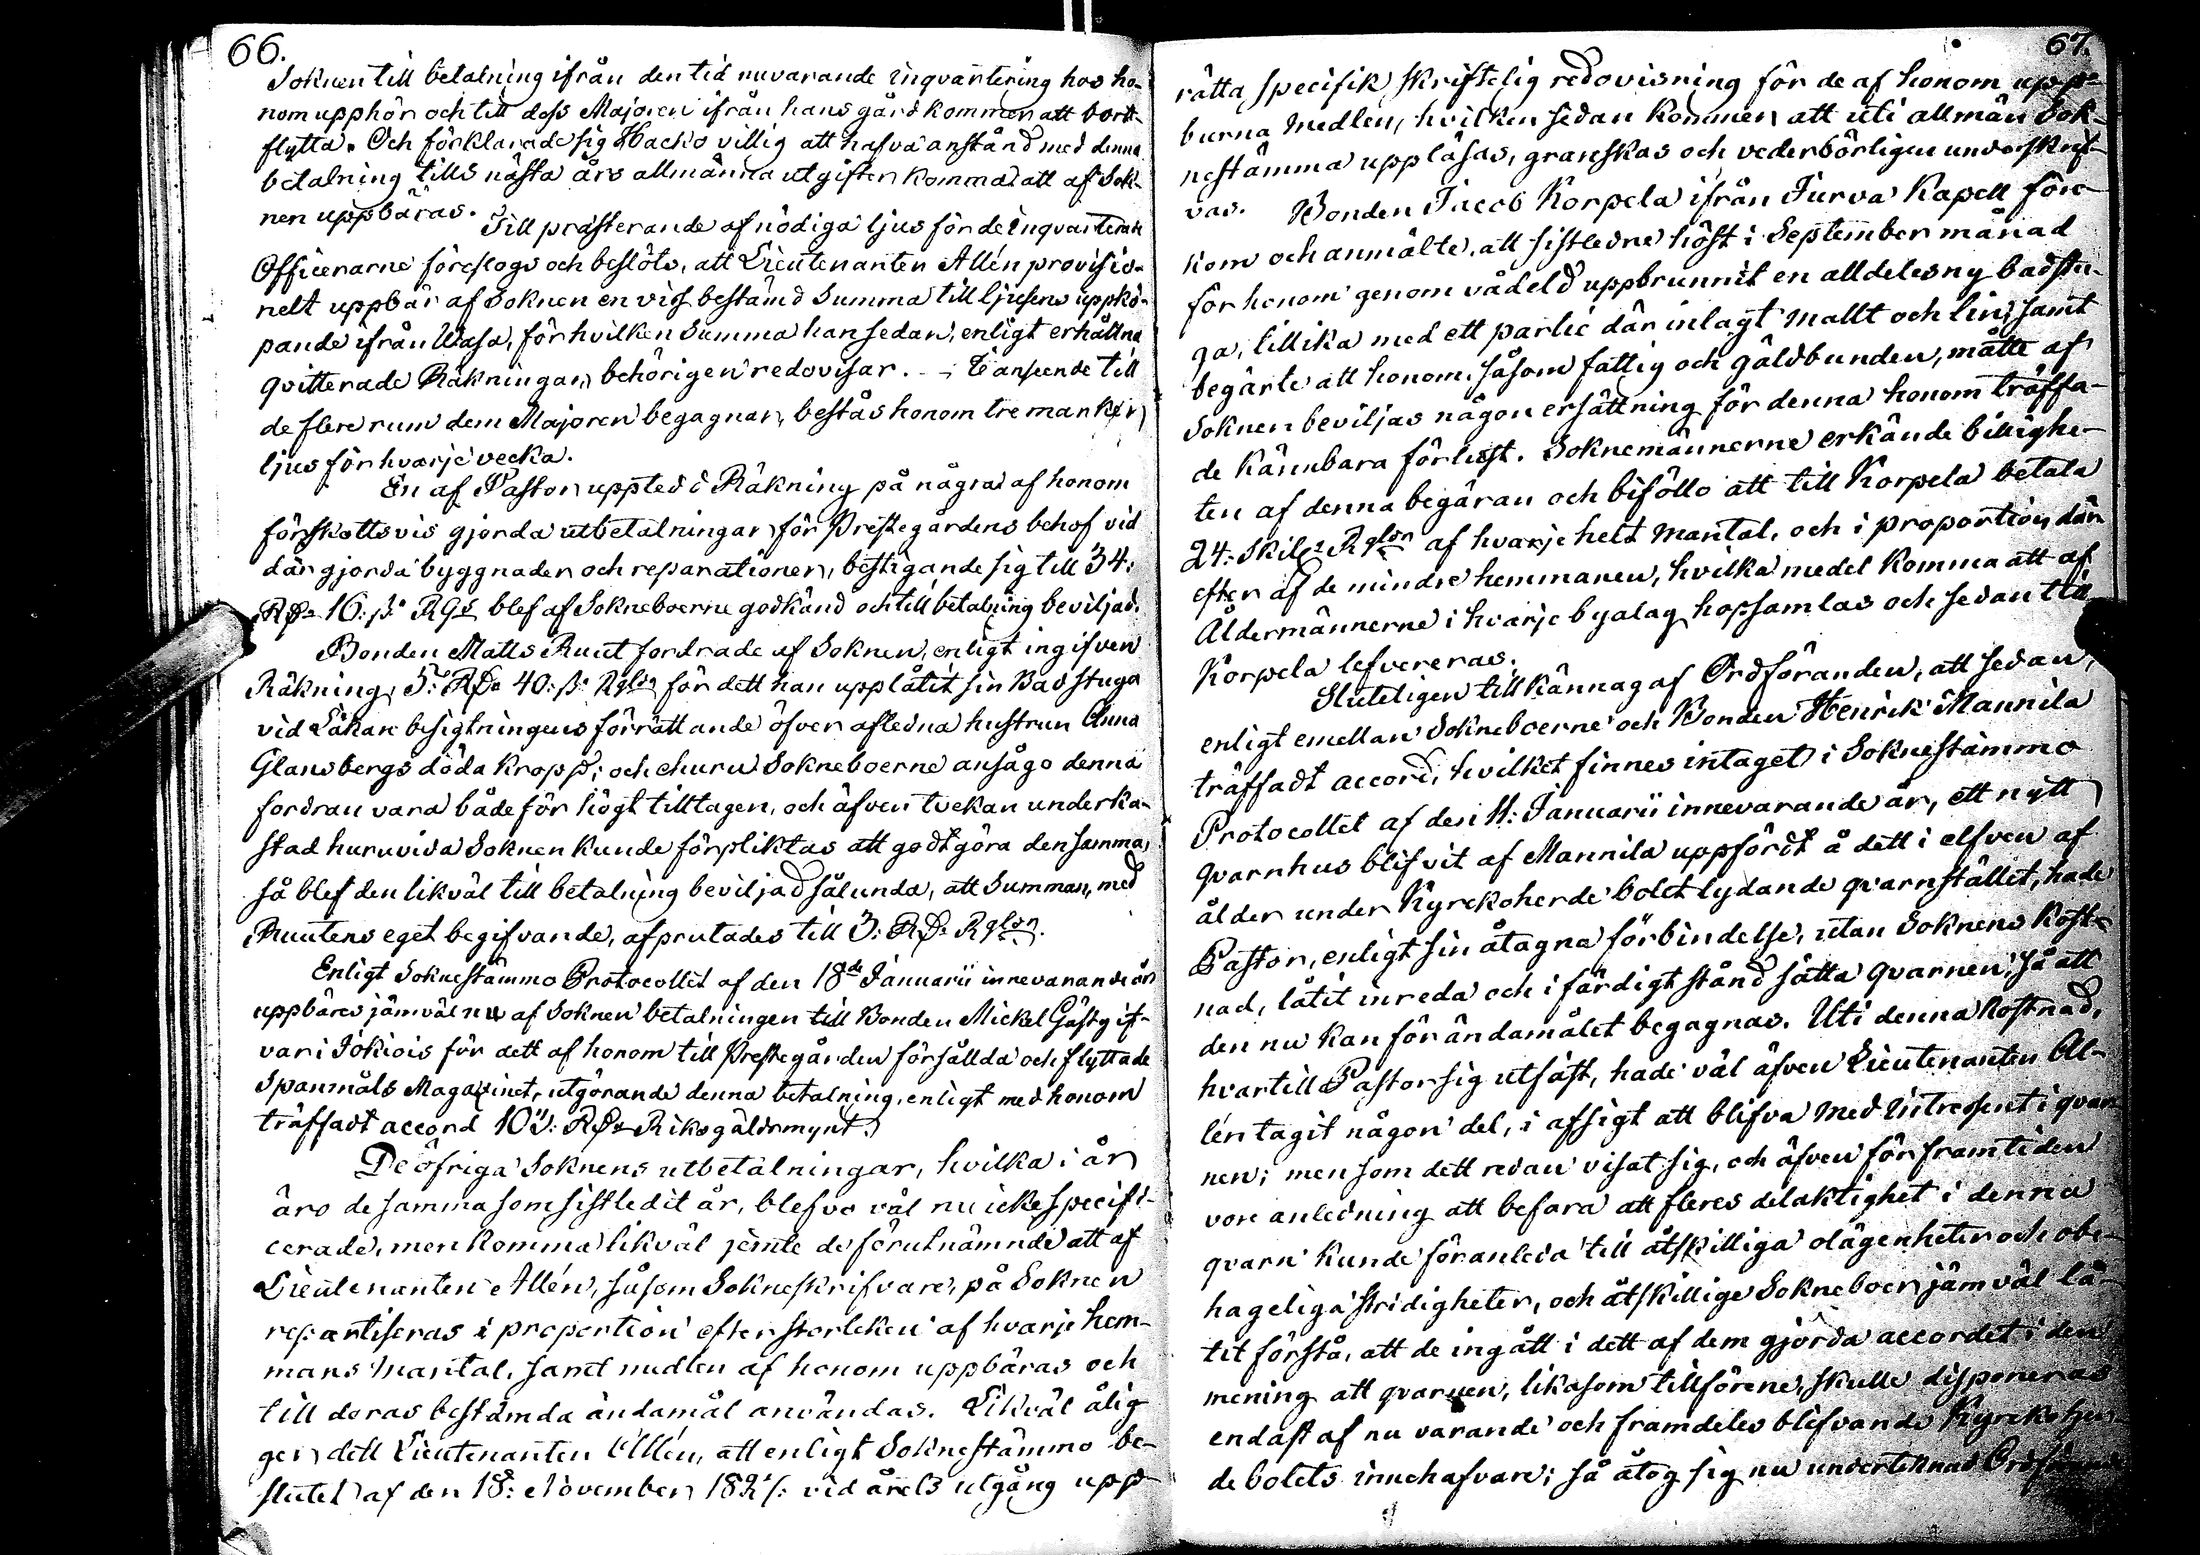 66.
Soknen till betalning ifrån den tid nuvarande inqvartering hos ho-
nom upphör och till dess Majoren ifrån hans gård kommer att bort-
flytta. Och förklarade sig Hacko villig att hafva anstånd med denna
betalning tills nästa års allmänna utgifter komma att af Sok-
nen uppbäras.
Till præsterande af nödiga ljus för de inqvarterade
Officerarne föreslogs och beslöts, att Lieutenanten Allén provisio-
nelt uppbär af Soknen en viss bestämd Summa till ljusens uppkö-
pande ifrån Wasa, för hvilken Summa han sedan, enligt erhållna
qvitterade Räkningar, behörigen redovisar. - I anseende till
de flere rum dem Majoren begagnar, bestås honom tre marker
ljus för hvarje vecka.
En af Pastor uppted d Räkning på några af honom
förskottsvis gjorda utbetalningar för Prestegårdens behof vid
där gjorda byggnader och reparationer, bestigande sig till 34:
Rd: 16: ß: Rgs blef af Sokneboerne godkänd och till betalning beviljad.
Bonden Matts Ruut fordrade af Soknen, enligt ingifven
Räkning, 5: Rd: 40: ß: Rglds för dett han upplåtit sin Badstuga
vid Läkare besigtningens förrättande öfver afledna hustrun Anna
Glansbergs döda kropp; och ehuru Sokneboerne ansågo denna
fordran vara både för högt tilltagen, och äfven tvekan underka-
stad huruvida Soknen kunde förpliktas att godtgöra densamma,
så blef den likväl till betalning beviljad sålunda, att Summan, med
Ruutens eget begifvande, afprutades till 3: Rd: Rglds.
Enligt Soknestämmo Protocollet af den 18de Januarii innevarande år
uppbäres jämväl nu af Soknen betalningen till Bonden Mickel Gästgif-
var i Jokiois för dett af honom till Prestegården försållda och flyttade
Spanmåls Magazinet, utgörande denna betalning, enligt med honom
träffadt accord 103: Rd: Riksgäldsmynt.
De öfriga Soknens utbetalningar, hvilka i år
äro de samma som sistledit år, blefvo väl nu icke specifi-
cerade, men komma likväl jemte de förutnämnde att af
Lieutenanten Allén, såsom Sokneskrifvare, på Soknen
repartiseras i proportion efter storleken af hvarje hem-
mans Mantal, samt medlen af honom uppbäras och
till deras bestämda ändamål användas. Likväl ålig-
ger dett Lieutenanten Allén, att enligt Soknestämmo be-
slutet af den 18: November 1821: vid årets utgång upp-
67.
rätta specifik skriftelig redovisning för de af honom upp-
burna Medlen, hvilken sedan kommer att uti allmän Sok-
nestämma uppläsas, granskas och vederbörligen underskrif-
vas.
Bonden Jacob Korpela ifrån Jurva Kapell före-
kom och anmälte, att sistledne höst i September månad
för honom genom vådeld uppbrunnit en alldeles ny badstu-
ga, tillika med ett partie där inlagt Mallt och lin, samt
begärte att honom, såsom fattig och gäldbunden, måtte af
Soknen beviljas någon ersättning för denna honom träffa-
de kännbara förlust. Soknemännerne erkände billighe-
ten af denna begäran och biföllo att till Korpela betala
24: Skil: Rglds af hvarje helt Mantal, och i proportion där
efter af de mindre hemmanen, hvilka medel komma att af
Åldermännerne i hvarje byalag hopsamlas och sedan till
Korpela lefvereras.
Sluteligen tillkännagaf Ordföranden, att sedan,
enligt emellan Sokneboerne och Bonden Henrik Mannila
träffadt accord, hvilket finnes intaget i Soknestämmo
Protocollet af den 11: Januarii innevarande år, ett nytt
qvarnhus blifvit af Mannila uppfördt å dett i elfven af
ålder under Kyrckoherde bolet lydande qvarnstället, hade
Pastor, enligt sin åtagna förbindelse, utan Soknens kost-
nad, låtit inreda och i färdigt stånd sätta qvarnen, så att
den nu kan för ändamålet begagnas. Uti denna kostnad,
hvartill Pastor sig utfäst, hade väl äfven Lieutenanten Al-
lén tagit någon del, i afsigt att blifva Med intressent i qvar-
nen; men som dett redan visat sig, och äfven för framtiden
vore anledning att befara att fleres delaktighet i denna
qvarn kunde föranleda till åtskilliga olägenheter och obe-
hageliga stridigheter, och åtskillige Sokneboer jämväl lå-
tit förstå, att de ingått i dett af dem gjorda accordet i den
mening att qvarnen, likasom tillförene, skulle disponeras
endast af nu varande och framdeles blifvande Kyrckoher-
de bolets innehafvare; så åtog sig nu undertecknad Ordförande